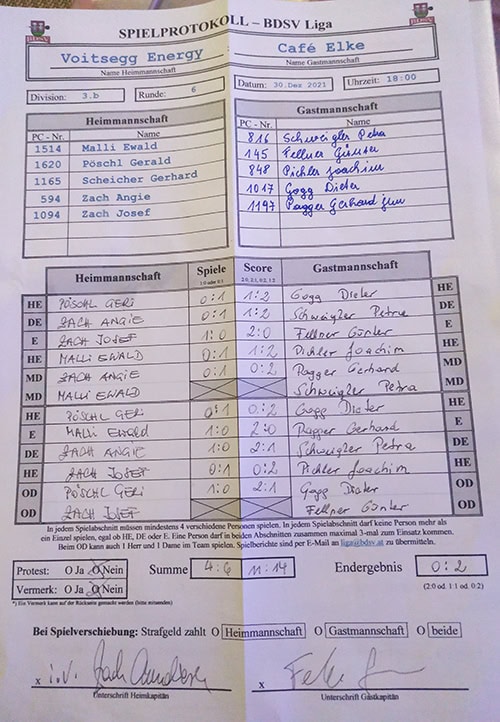 BDSV
SPIELPROTOKOLL – BDSV Liga
BDSV
Voitsegg Energy Café Elke
Name Heimmannschaft Name Gastmannschaft
Division: 3.b Runde: 6 Datum: 30.Dez 2021 Uhrzeit: 18:00
Heimmannschaft Gastmannschaft
PC - Nr. Name PC - Nr. Name
1514 Malli Ewald 816 Schweigler Petra
1620 Pöschl Gerald 145 Fellner Günter
1165 Scheicher Gerhard 848 Pichler Joachim
594 Zach Angie 1017 Gogg Dieter
1094 Zach Josef 1197 Pagger Gerhard jun
Heimmannschaft Spiele Score Gastmannschaft
1:0 oder 0:1 2:0, 2:1, 0:2, 1:2
HE PÖSCHL GERI 0:1 1:2 Gogg Dieter HE
DE ZACH ANGIE 0:1 1:2 Schweigler Petra DE
E ZACH JOSEF 1:0 2:0 Fellner Günter E
HE MALLI EWALD 0:1 1:2 Pichler Joachim HE
MD ZACH ANGIE 0:1 0:2 Pagger Gerhard MD
MD MALLI EWALD Schweigler Petra MD
HE PÖSCHL GERI 0:1 0:2 Gogg Dieter HE
E MALLI EWALD 1:0 2:0 Pagger Gerhard E
DE ZACH ANGIE 1:0 2:1 Schweigler Petra DE
HE ZACH JOSEF 0:1 0:2 Pichler Joachim HE
OD PÖSCHL GERI 1:0 2:1 Gogg Dieter OD
OD ZACH JOSEF Fellner Günter OD
In jedem Spielabschnitt müssen mindestens 4 verschiedene Personen spielen. In jedem Spielabschnitt darf keine Person mehr als
ein Einzel spielen, egal ob HE, DE oder E. Eine Person darf in beiden Abschnitten zusammen maximal 3-mal zum Einsatz kommen.
Beim OD kann auch 1 Herr und 1 Dame im Team spielen. Spielberichte sind per E-Mail an liga@bdsv.at zu übermitteln.
Protest: O Ja O Nein Summe 4:6 11:14 Endergebnis 0:2
Vermerk: O Ja O Nein (2:0 od. 1:1 od. 0:2)
*) Ein Vermerk kann auf der Rückseite gemacht werden (bitte ankreuzen)
Bei Spielverschiebung: Strafgeld zahlt O Heimmannschaft O Gastmannschaft O beide
x i.V. x
Unterschrift Heimkapitän Unterschrift Gastkapitän